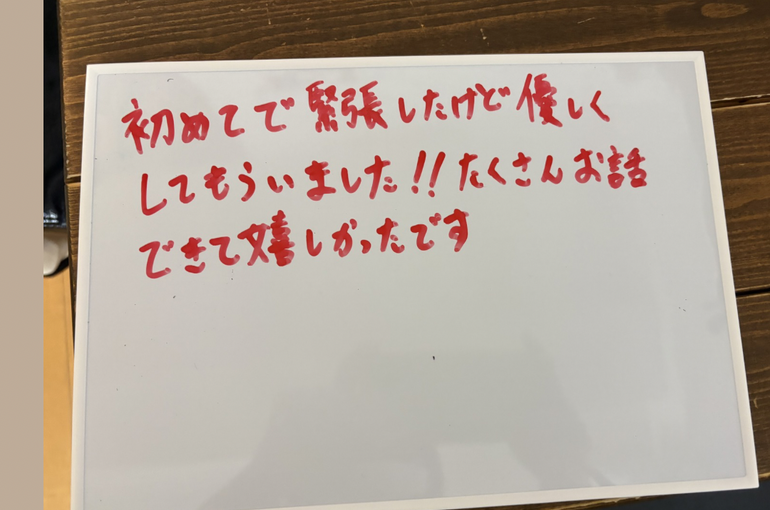 初めてで緊張したけど優しく
してもらいました!!たくさんお話
できて嬉しかったです